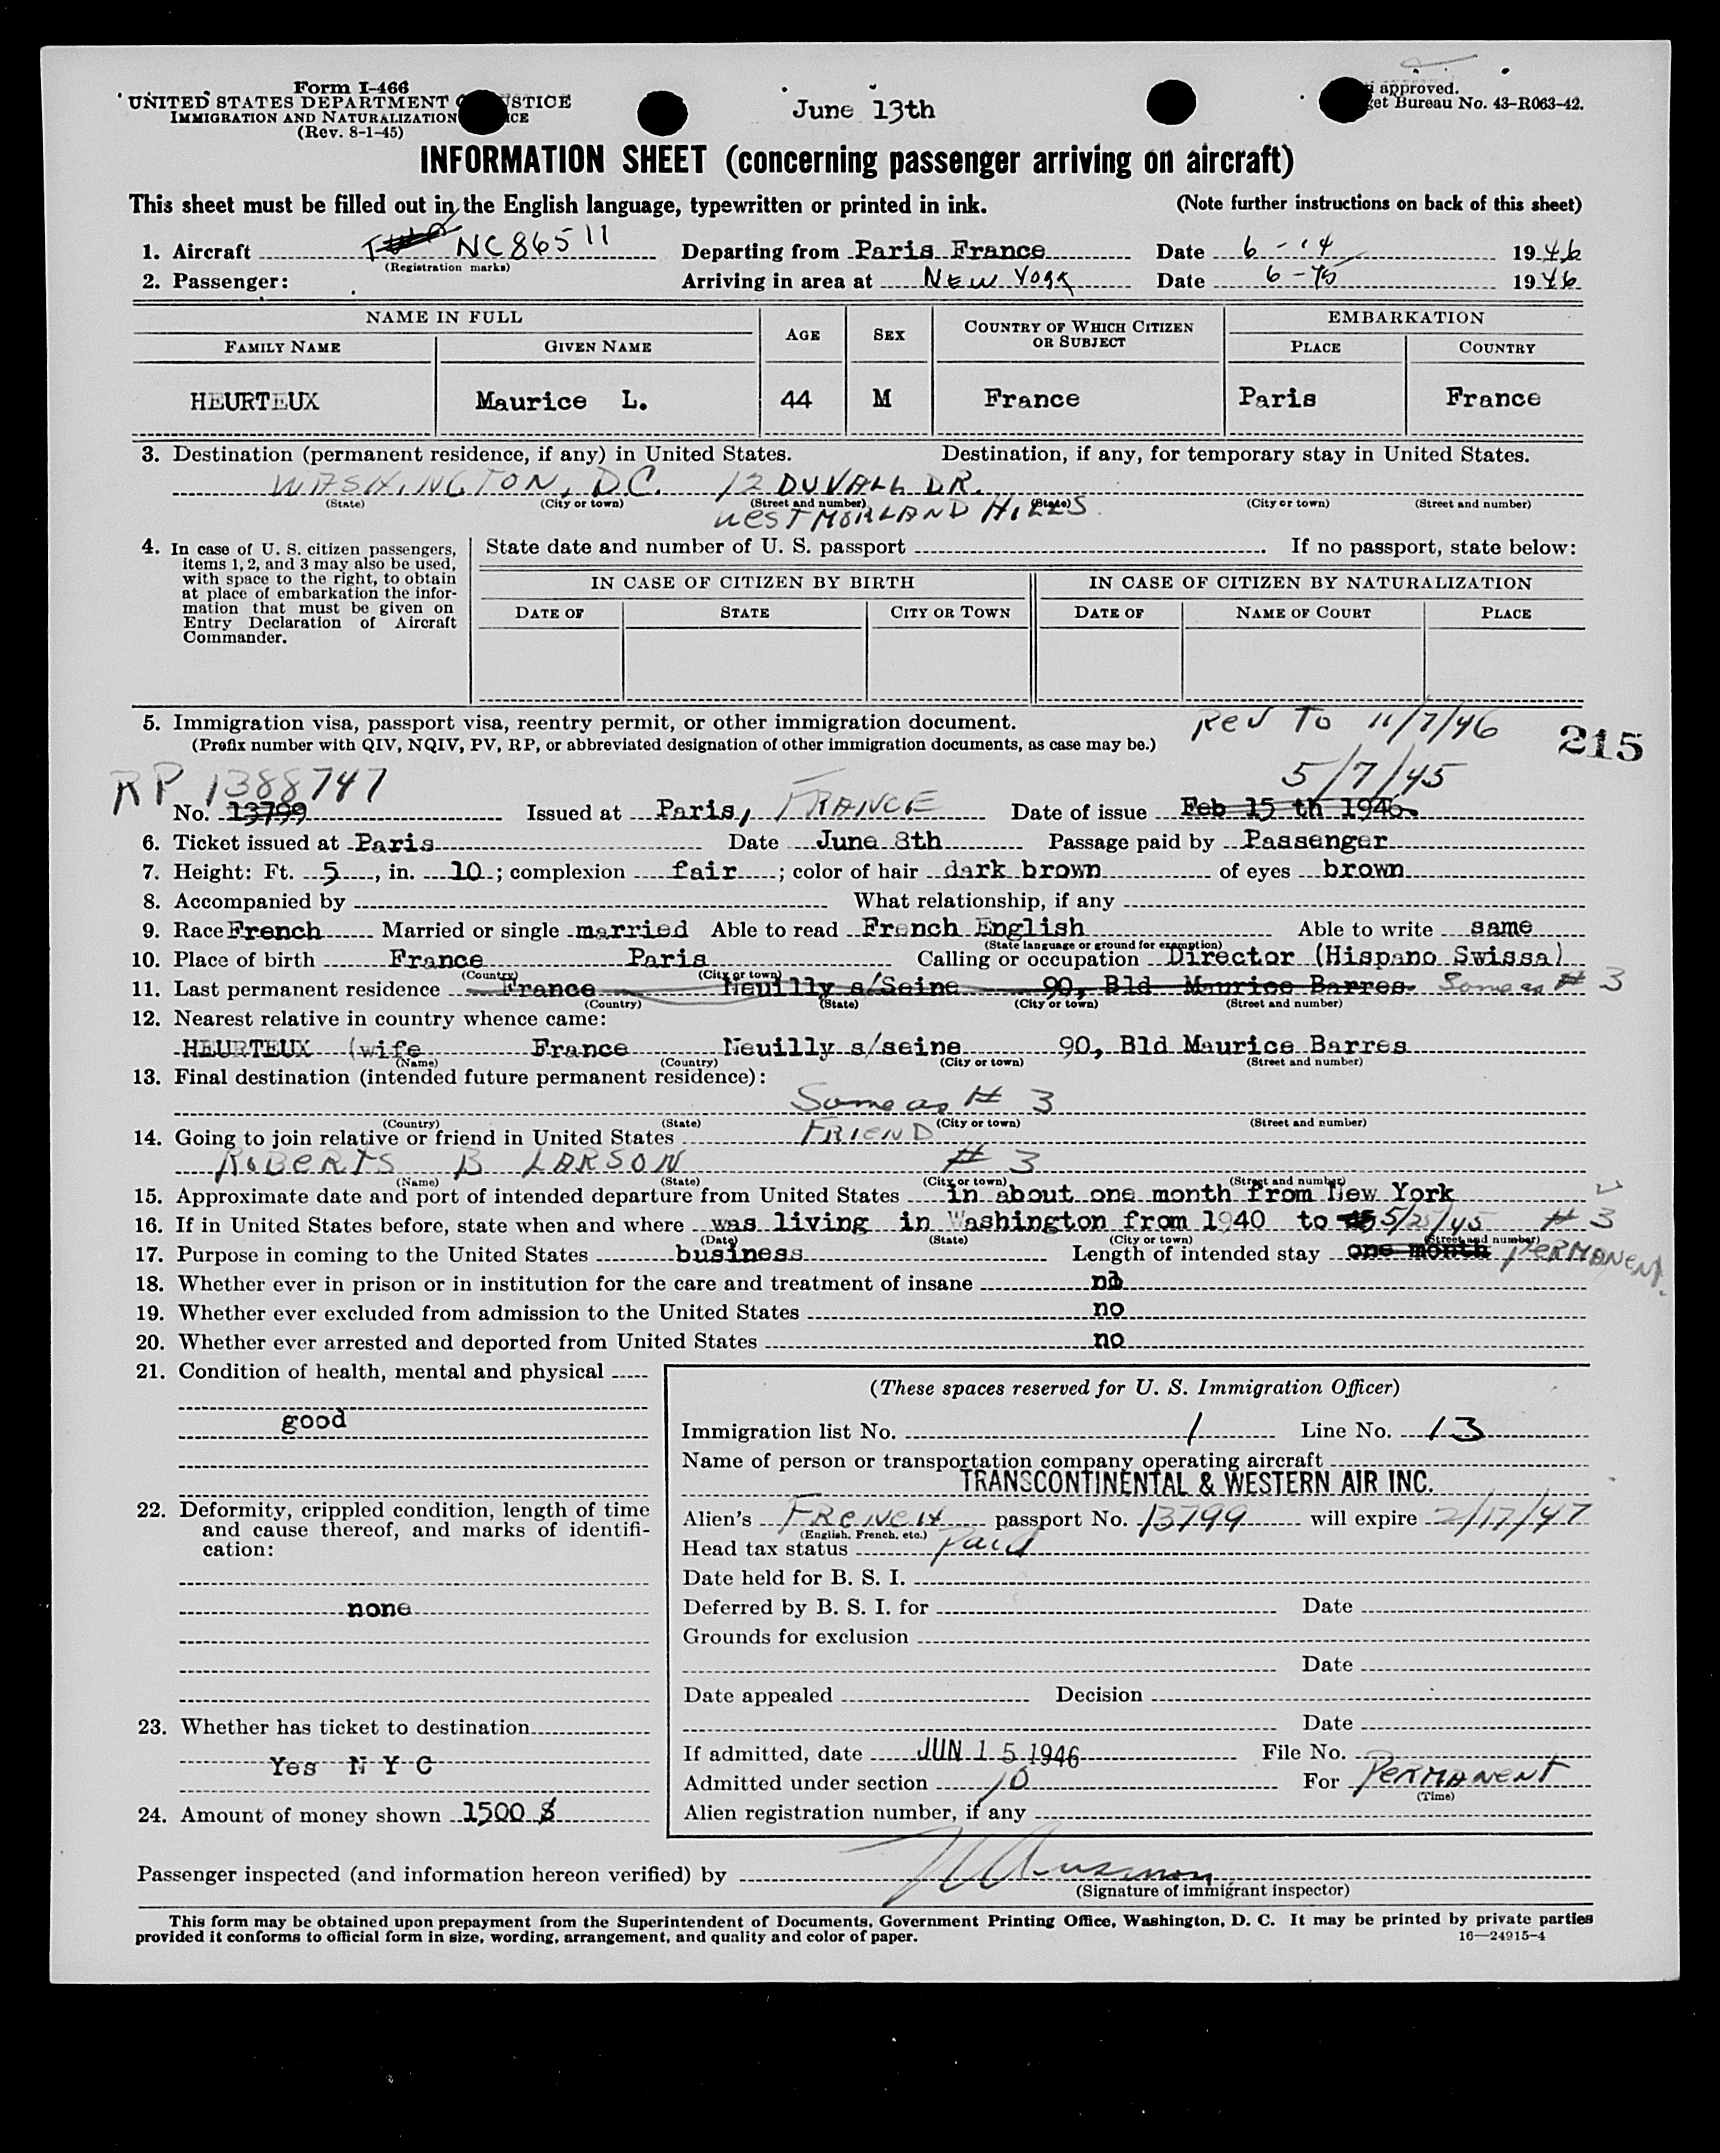 Form I-466
UNITED STATES DEPARTMENT STICE
IMMIGRATION AND NATURALIZATION ICE
(Rev. 8-1-45)
June 13th
approved.
et Bureau No. 43-R063-42.
INFORMATION SHEET (concerning passenger arriving on aircraft)
This sheet must be filled out in the English language, typewritten or printed in ink. (Note further instructions on back of this sheet)
1. Aircraft NC 86511 Departing from Paris France Date 6-14 1946
(Registration marks)
2. Passenger: Arriving in area at NEW YORK Date 6-15 1946
NAME IN FULL AGE SEX COUNTRY OF WHICH CITIZEN OR SUBJECT EMBARKATION
FAMILY NAME GIVEN NAME PLACE COUNTRY
HEURTEUX Maurice L. 44 M France Paris France
3. Destination (permanent residence, if any) in United States. Destination, if any, for temporary stay in United States.
WASHINGTON, D.C. 12 DUVALL DR.
(State) (City or town) (Street and number) (State) (City or town) (Street and number)
WESTMORLAND HILLS
4. In case of U. S. citizen passengers, items 1, 2, and 3 may also be used, with space to the right, to obtain at place of embarkation the information that must be given on Entry Declaration of Aircraft Commander.
State date and number of U. S. passport . If no passport, state below:
IN CASE OF CITIZEN BY BIRTH IN CASE OF CITIZEN BY NATURALIZATION
DATE OF STATE CITY OR TOWN DATE OF NAME OF COURT PLACE
5. Immigration visa, passport visa, reentry permit, or other immigration document. Rev To 11/7/46
(Prefix number with QIV, NQIV, PV, RP, or abbreviated designation of other immigration documents, as case may be.) 215
RP 1388747 5/7/45
No. 13799 Issued at Paris, FRANCE Date of issue Feb 15 th 1946
6. Ticket issued at Paris Date June 8th Passage paid by Passenger
7. Height: Ft. 5, in. 10; complexion fair; color of hair dark brown of eyes brown
8. Accompanied by What relationship, if any
9. Race French Married or single married Able to read French English Able to write same
(State language or ground for exemption)
10. Place of birth France Paris Calling or occupation Director (Hispano Swissa)
(Country) (City or town)
11. Last permanent residence France Neuilly s/Seine 90, Bld Maurice Barres. Same as # 3
(Country) (State) (City or town) (Street and number)
12. Nearest relative in country whence came:
HEURTEUX (wife France Neuilly s/seine 90, Bld Maurice Barres
(Name) (Country) (City or town) (Street and number)
13. Final destination (intended future permanent residence):
Same as # 3
(Country) (State) (City or town) (Street and number)
14. Going to join relative or friend in United States FRIEND
ROBERTS B LARSON # 3
(Name) (State) (City or town) (Street and number)
15. Approximate date and port of intended departure from United States in about one month from New York
16. If in United States before, state when and where was living in Washington from 1940 to 5/25/45 # 3
(Date) (State) (City or town) (Street and number)
17. Purpose in coming to the United States business Length of intended stay one month PERMANENT.
18. Whether ever in prison or in institution for the care and treatment of insane no
19. Whether ever excluded from admission to the United States no
20. Whether ever arrested and deported from United States no
21. Condition of health, mental and physical
good
22. Deformity, crippled condition, length of time and cause thereof, and marks of identification:
none
23. Whether has ticket to destination
Yes N Y C
24. Amount of money shown 1500 $
(These spaces reserved for U. S. Immigration Officer)
Immigration list No. 1 Line No. 13
Name of person or transportation company operating aircraft
TRANSCONTINENTAL & WESTERN AIR INC.
Alien's FRENCH passport No. 13799 will expire 2/17/47
(English, French, etc.)
Head tax status Paid
Date held for B. S. I.
Deferred by B. S. I. for Date
Grounds for exclusion
Date
Date appealed Decision
Date
If admitted, date JUN 15 1946 File No.
Admitted under section 10 For PERMANENT
(Time)
Alien registration number, if any
Passenger inspected (and information hereon verified) by
(Signature of immigrant inspector)
This form may be obtained upon prepayment from the Superintendent of Documents, Government Printing Office, Washington, D. C. It may be printed by private parties
provided it conforms to official form in size, wording, arrangement, and quality and color of paper. 16—24915-4